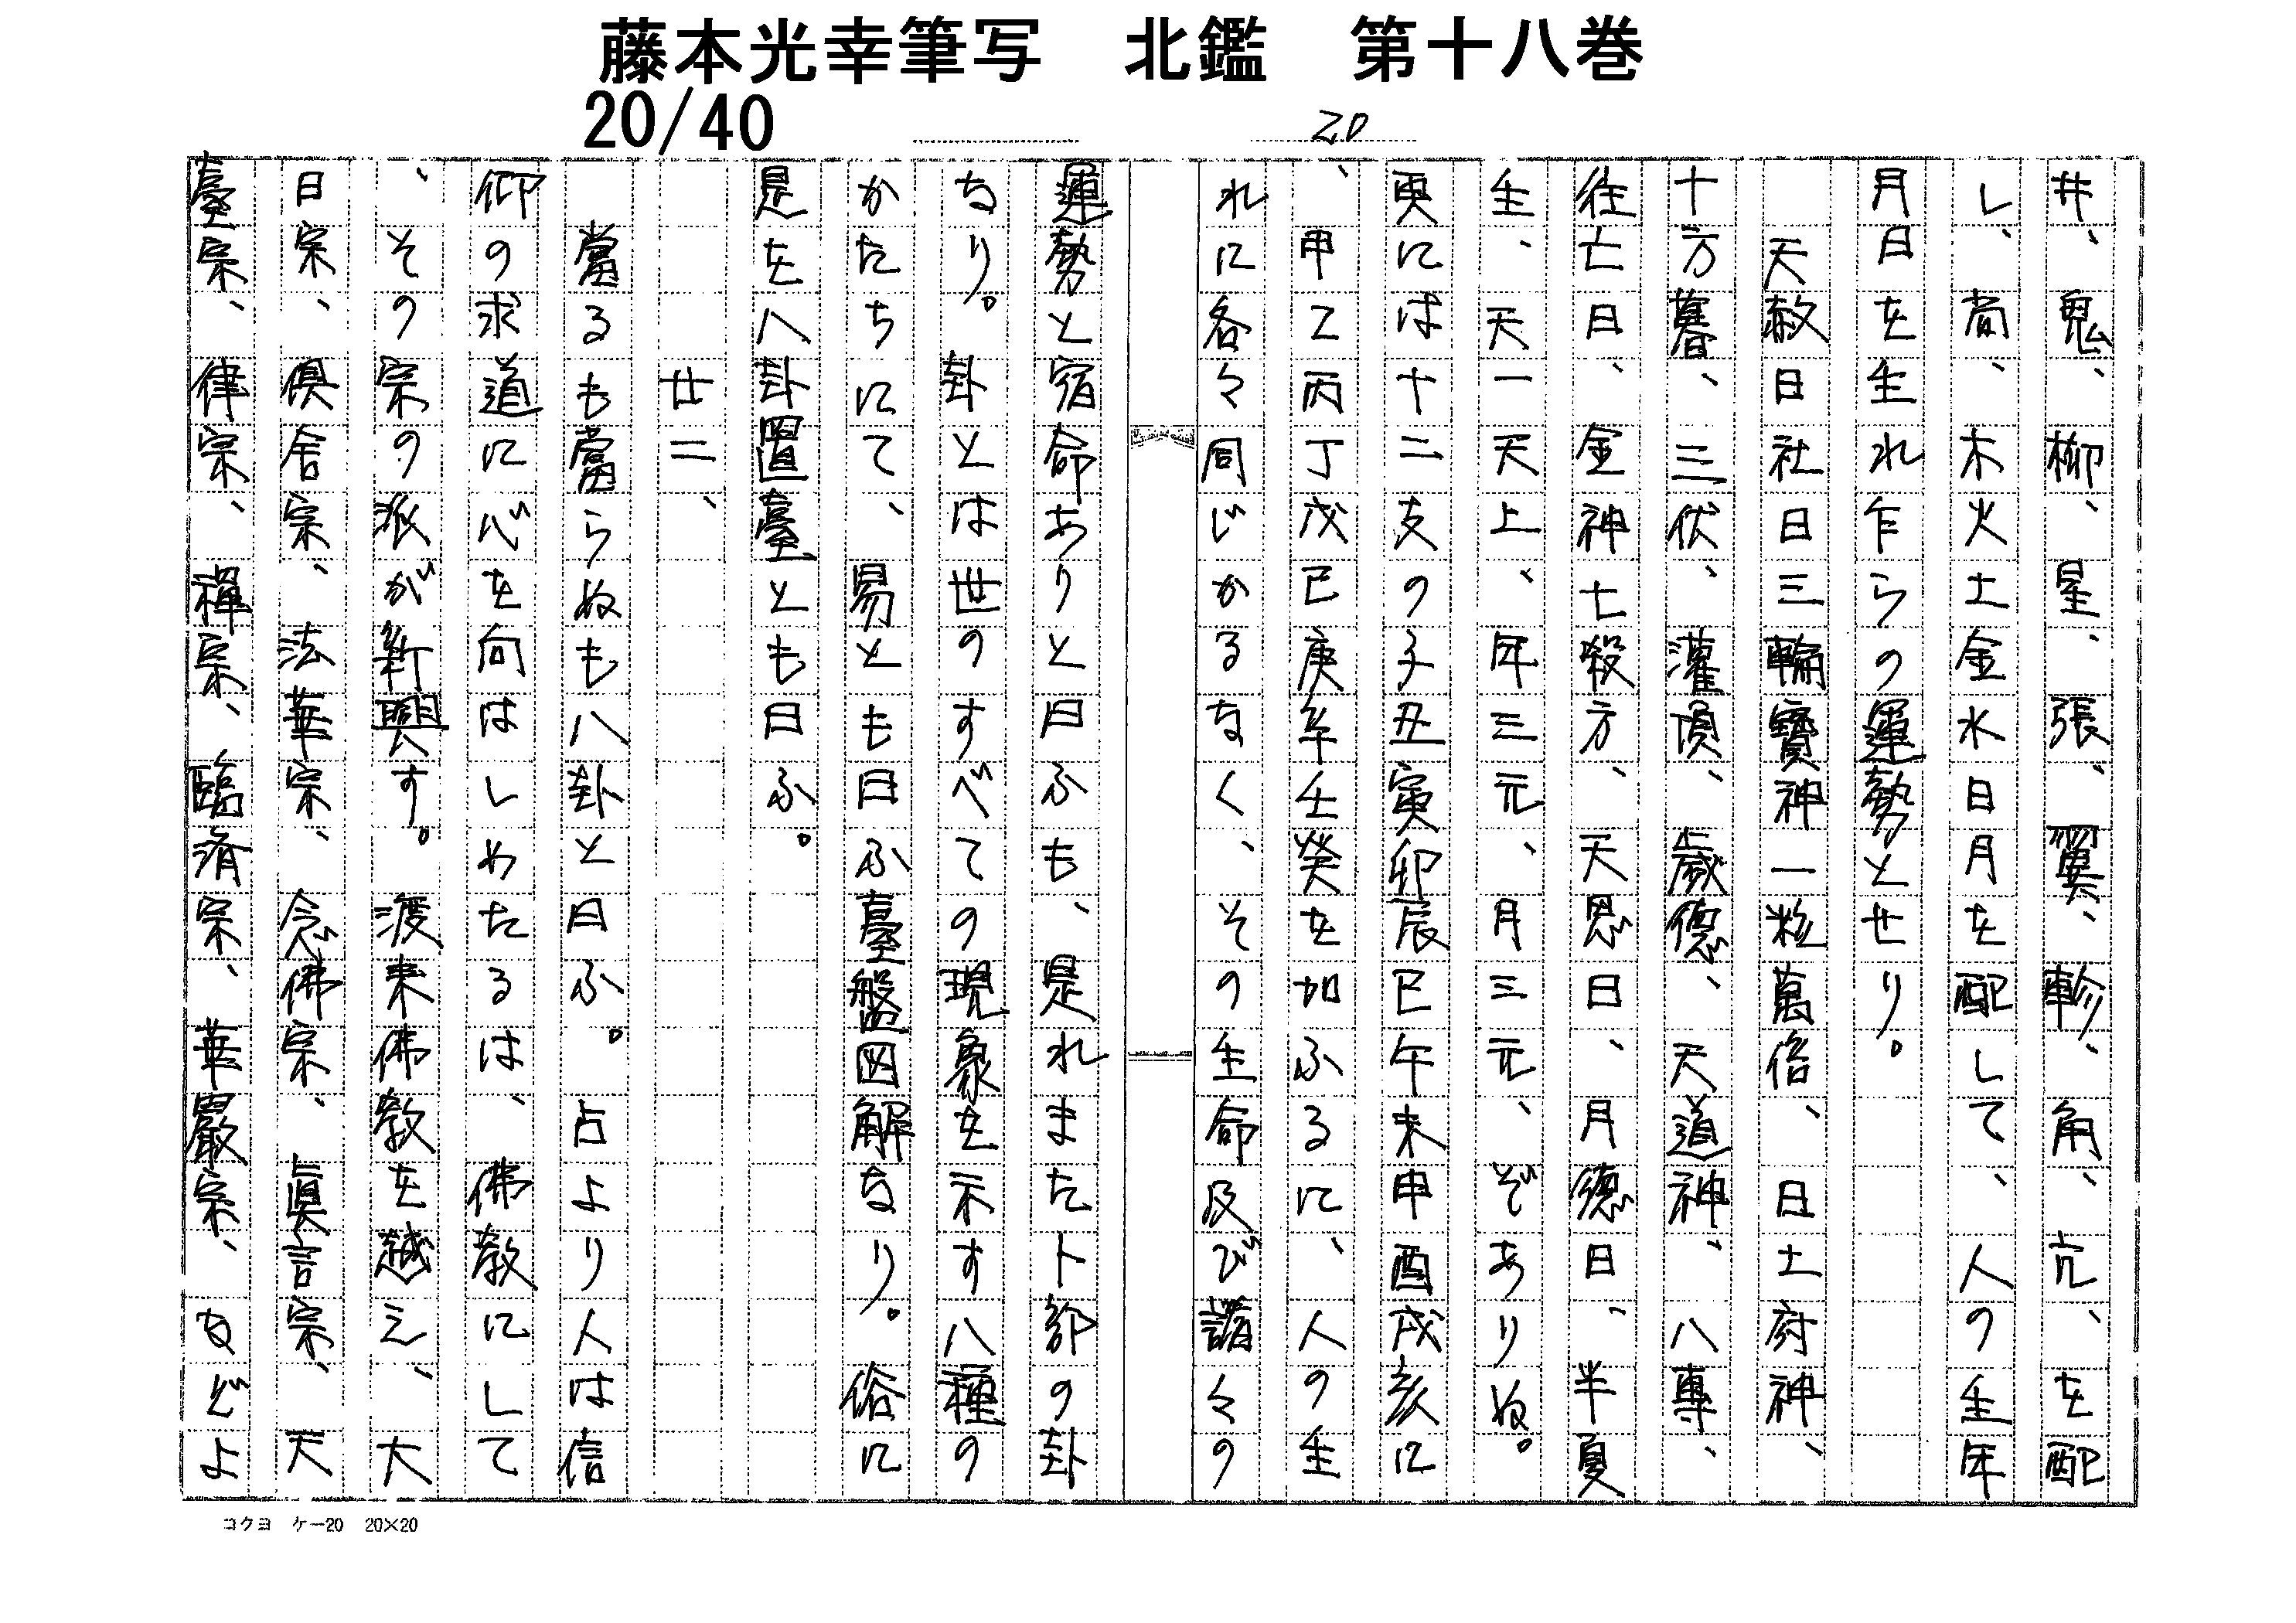 藤本光幸筆写　北鑑　第十八巻
20/40
20
井、鬼、柳、星、張、翼、軫、角、亢、を配
し、斎、木火土金水日月を配して、人の生年
月日を生れ乍らの運勢とせり。
天赦日社日三輪寶神一粒萬倍、日土府神、
十方暮、三伏、灌頂、歳德、天道神、八專、
往亡日、金神七殺方、天恩日、月德日、半夏
生、天一天上、年三元、月三元、ぞありぬ。
更には十二支の子丑寅卯辰巳午未申酉戌亥に
、甲乙丙丁戊己庚辛壬癸を加ふるに、人の生
れに各々同じかるなく、その生命及び諸々の
運勢と宿命ありと曰ふも、是れまた卜部の卦
なり。卦とは世のすべての現象を示す八種の
かたちにて、易とも曰ふ臺盤図解なり。俗に
是を八卦置臺とも曰ふ。
廿二、
當るも當らぬも八卦と曰ふ。占より人は信
仰の求道に心を向はしめたるは、佛教にして
、その宗の派が新興す。渡来佛教を越え、大
日宗、倶舎宗、法華宗、念佛宗、眞言宗、天
臺宗、律宗、禪宗、臨済宗、華嚴宗、などよ
コクヨ　ケ－20　20×20